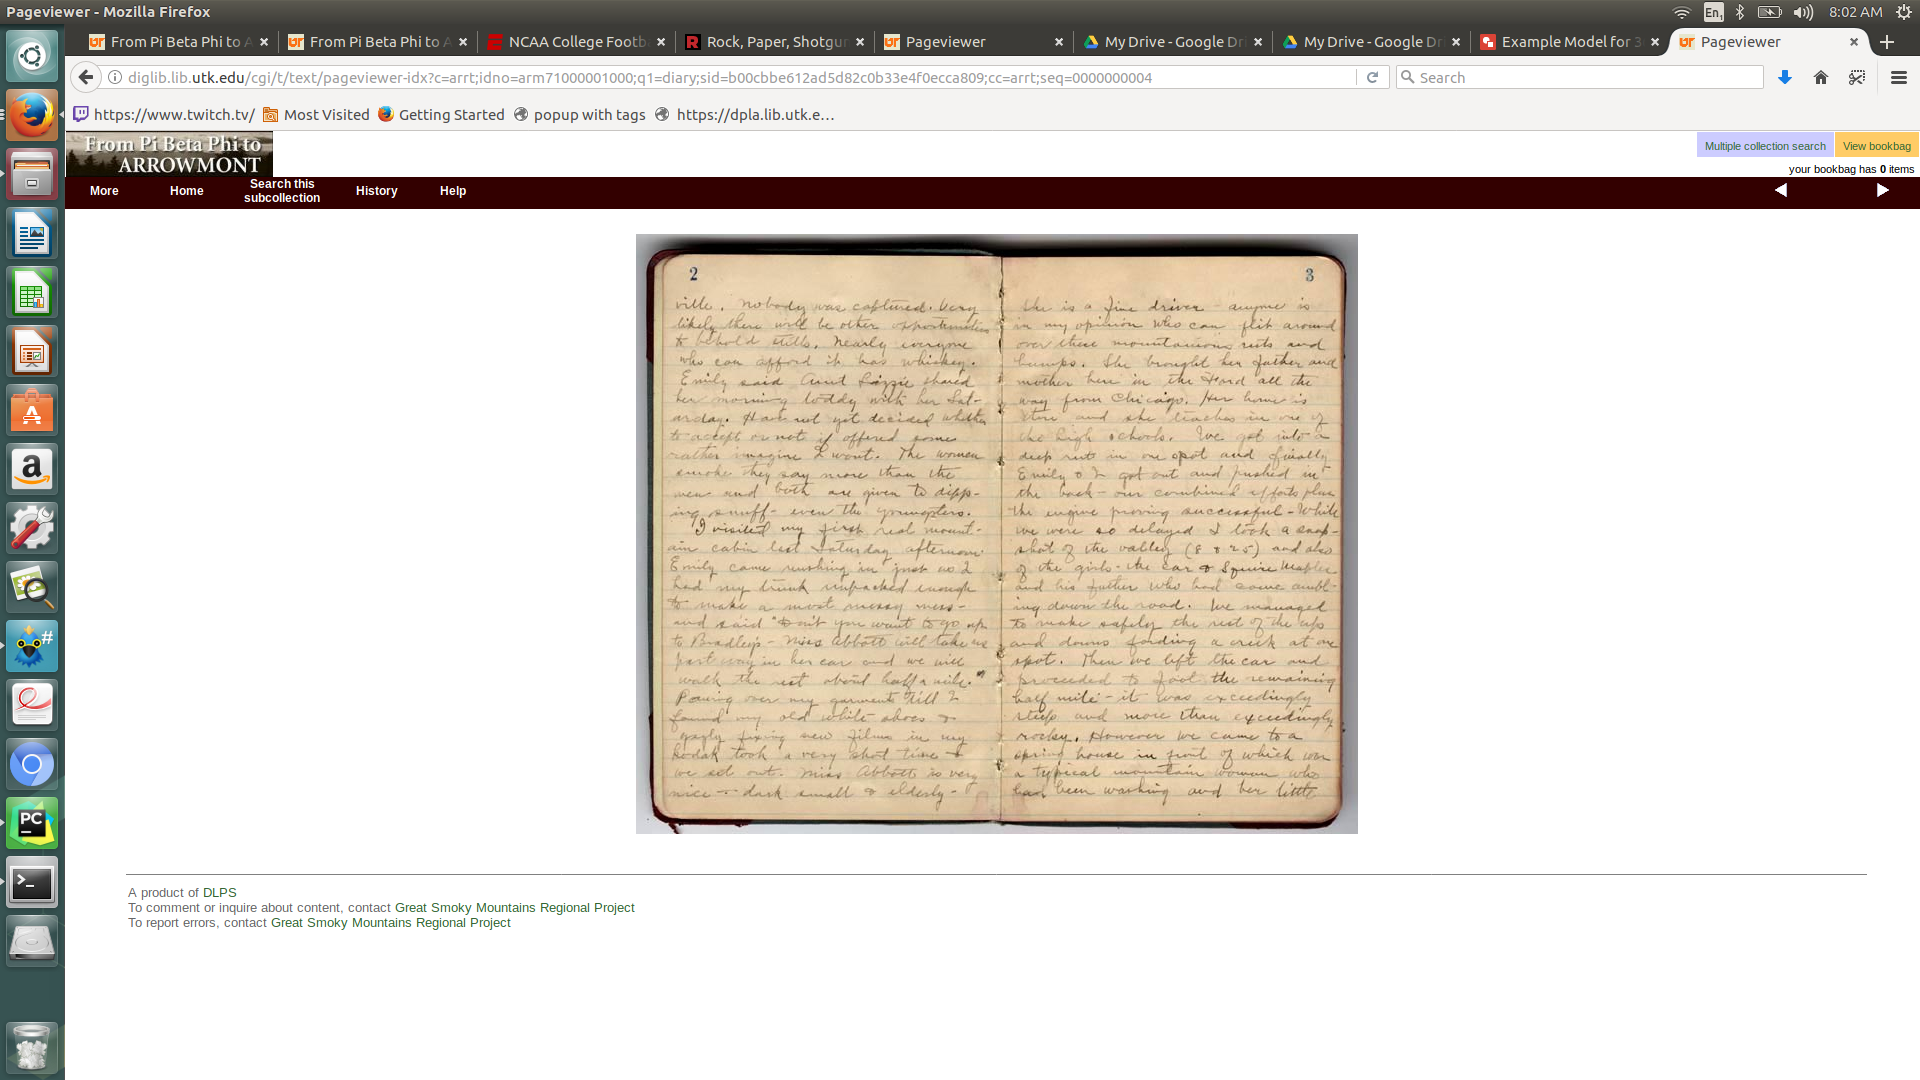 Pageviewer - Mozilla Firefox
En1
8:02 AM
From Pi Beta Phi to A
From Pi Beta Phi to A
NCAA College Footb
Rock, Paper, Shotgun
Pageviewer
My Drive - Google Dr
My Drive - Google Dr
Example Model for 3
Pageviewer
diglib.lib.utk.edu/cgi/t/text/pageviewer-idx?c=arrt;idno=arm71000001000;q1=diary;sid=b00cbbe612ad5d82c0b33e4f0ecca809;cc=arrt;seq=0000000004
Search
https://www.twitch.tv/
Most Visited
Getting Started
popup with tags
https://dpla.lib.utk.e…
From Pi Beta Phi to
ARROWMONT
Multiple collection search
View bookbag
your bookbag has 0 items
More
Home
Search this
subcollection
History
Help
2
ville. Nobody was captured. Very
likely there will be other opportunities
to behold stills. Nearly everyone
who can afford it has whiskey.
Emily said Aunt Lizzie shared
her morning toddy with her Sat-
urday. Have not yet decided whether
to accept or not if offered some
rather imagine I wont. The women
smoke they say more than the
men and both are given to dipp-
ing snuff - even the youngsters.
I visited my first real mount-
ain cabin last Saturday afternoon.
Emily came rushing in just as I
had my trunk unpacked enough
to make a most messy mess -
and said "Don't you want to go up
to Bradley's - Miss Abbott will take us
part way in her car and we will
walk the rest about half a mile."
Pawing over my garments till I
found my old white shoes &
gayly fixing new films in my
kodak took a very short time &
we set out. Miss Abbott is very
nice - dark small & elderly -
3
She is a fine driver - anyone is
in my opinion who can flit around
over these mountainous ruts and
bumps. She brought her father and
mother here in the Ford all the
way from Chicago. Her home is
there and she teaches in one of
the high schools. We got into a
deep rut in one spot and finally
Emily & I got out and pushed in
the back - our combined efforts plus
the engine proving successful - While
we were so delayed I took a snap-
shot of the valley (8 & 25) and also
of the girls - the car & Squire Maples
and his father who had come ambl-
ing down the road. We managed
to make safely the rest of the ups
and downs fording a creek at one
spot. Then we left the car and
proceeded to foot the remaining
half mile - it was exceedingly
steep and more than exceedingly
rocky. However we came to a
spring house in front of which was
a typical mountain woman who
had been washing and her little
A product of DLPS
To comment or inquire about content, contact Great Smoky Mountains Regional Project
To report errors, contact Great Smoky Mountains Regional Project